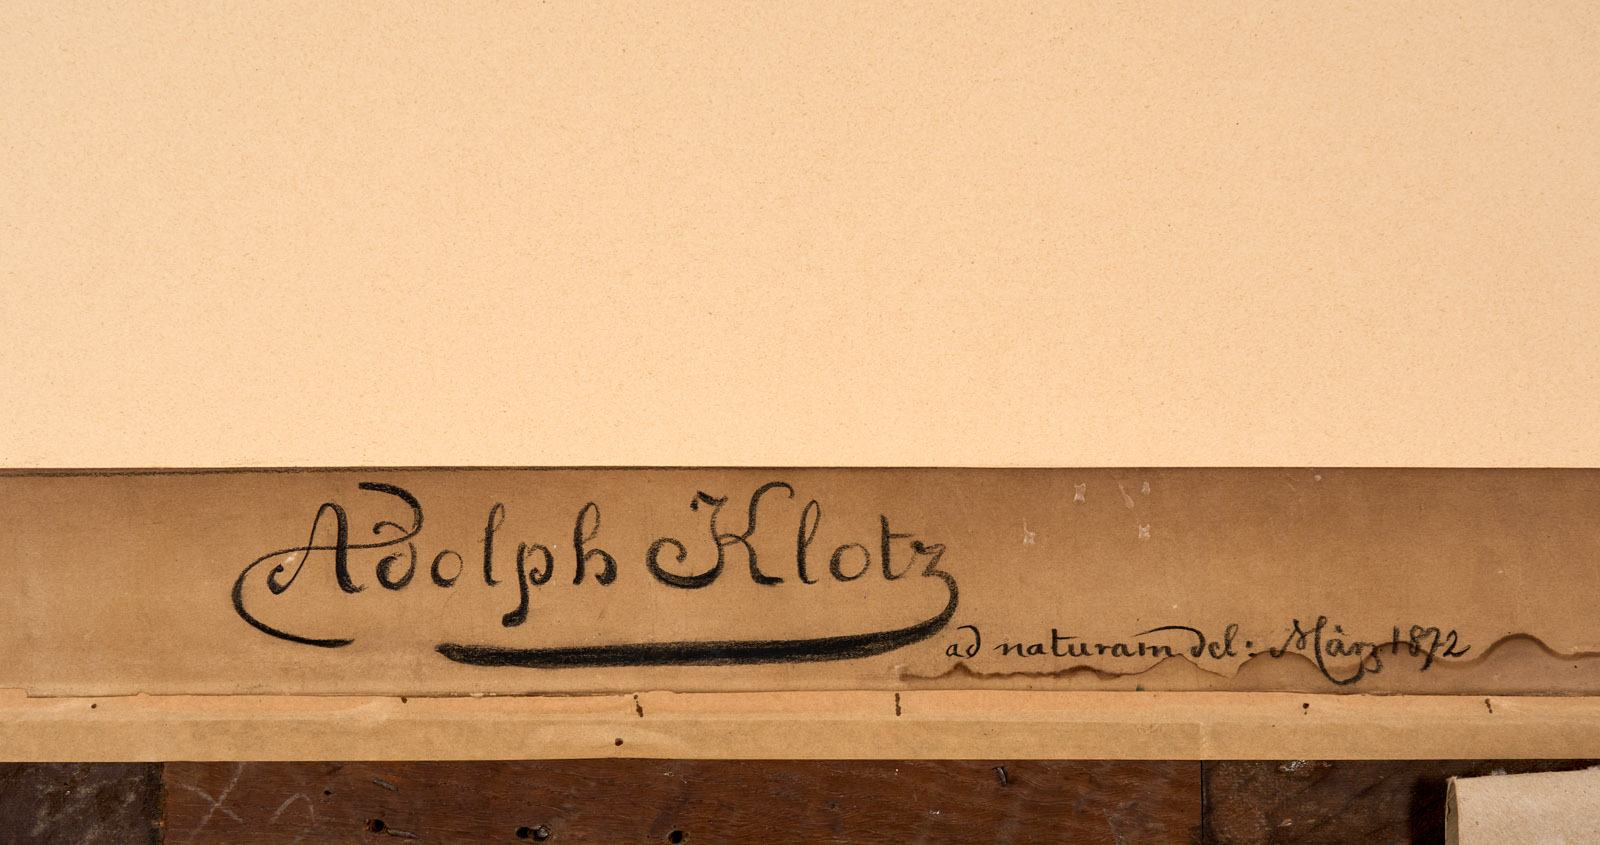 Adolph Klotz
ad naturam del: März 1872